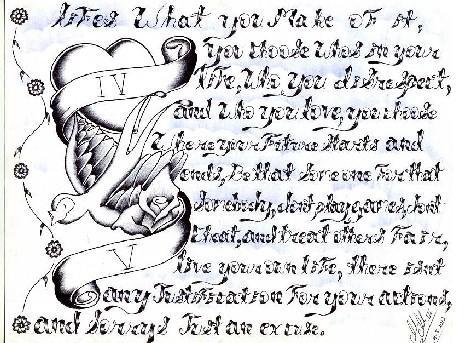 Lifes What you Make OF it,
You choose Whos in your
IV
Life, Who you disrespect,
and Who you love, you choose
Where your Future Starts and
ends, Be that Someone For that
Somebody, dont play games, dont
Cheat, and treat others Fair,
V
live your own life, there isnt
any Justification For your actions,
and Sorrys Just an excuse.